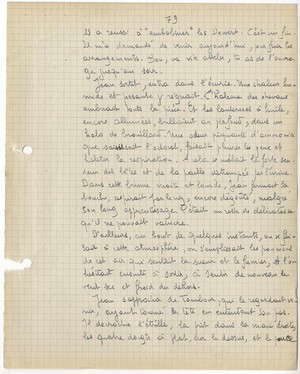 79
Il a réussi à "embobiner" les Devert. C'est un fin.
Il m'a demandé de venir aujourd'hui, ou fixer les
arrangements. Bon, va vite atteler, tu as de l'ouvra-
ge jusqu'au soir.
Jean sortit, entra dans l'écurie. Une chaleur hu-
mide et pesante y régnait. L'haleine des chevaux
embrumait toute la pièce. Et les lanternes à huile,
encore allumées, brillaient au plafond, dans un
halo de brouillard. Une odeur piquante d'ammoniaque
qui saisissait l'odorat, faisait pleurer les yeux et
haleter la respiration. À cela se mêlait la forte sen-
teur des bêtes et de la paille détrempée par l'urine.
Dans cette brume moite et lourde, Jean fermait la
bouche, aspirait par le nez, encore dégoûté, malgré
son long apprentissage. C'était un reste de délicatesse
qu'il ne pouvait vaincre.
D'ailleurs, au bout de quelques instants, on se fai-
sait à cette atmosphère, on s'emplissait les poumons
de cet air qui sentait la sueur et le fumier, et l'on
hésitait ensuite à sortir, à sentir de nouveau le
vent sec et froid du dehors.
Jean s'approcha de Tambour, qui le regardait ve-
nir, ayant tourné la tête en entendant son pas.
Il décrocha l'étrille, la prit dans sa main droite,
les quatre doigts à plat, sur le dessus, et le pouce